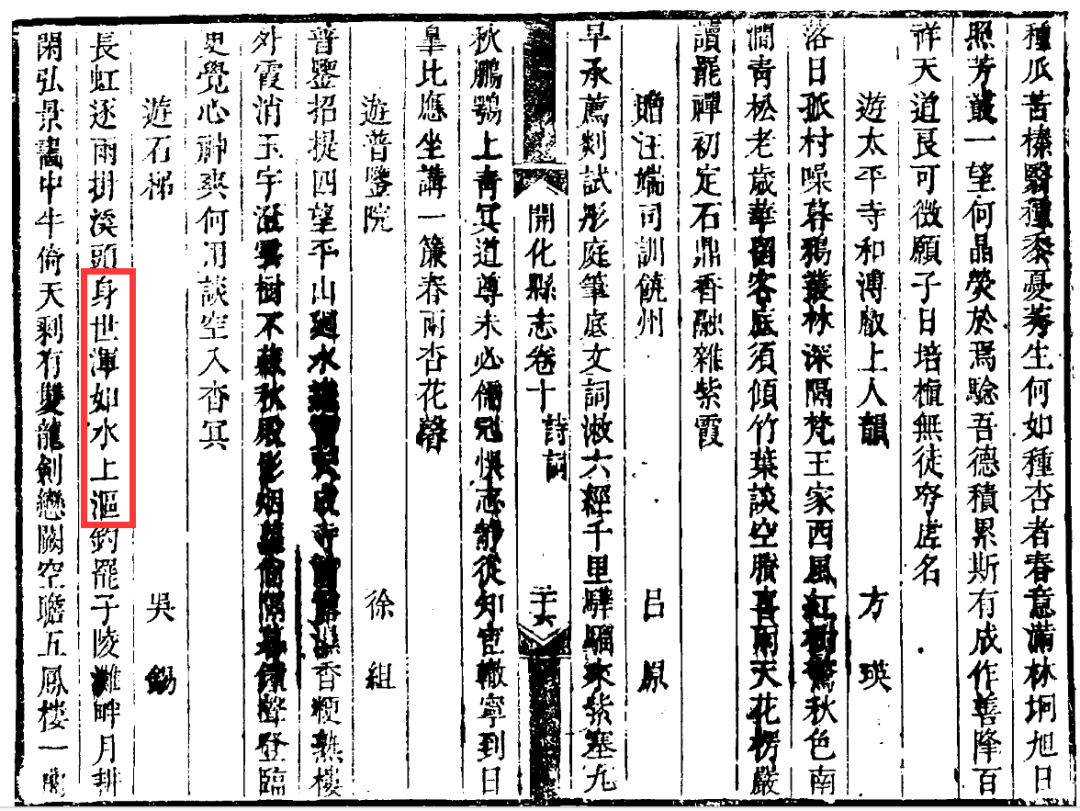 種瓜苦榛翳種黍憂莠生何如種杏者春意滿林坰旭日
照芳叢一望何晶熒於焉驗吾德積累斯有成作善降百
祥天道良可徵願子日培植無徒夸虛名
遊太平寺和溥敵上人韻 方瑛
落日孤村噪暮鴉叢林深隔梵王家西風紅樹驚秋色南
澗青松老歲華留客底須傾竹葉談空賸喜雨天花楞嚴
讀罷禪初定石鼎香融雜紫霞
贈汪端司訓饒州 吕原
早承薦剡試彤庭筆底文詞漱六經千里驊騮來紫塞九
開化縣志卷十 詩詞
秋鵬鶚上青冥道尊未必儒冠悞志靜從知宦轍寧到日
皐比應坐講一簾春雨杏花馨
遊普鑒院 徐組
普鑒招提四望平山廻水 寺 香粳熟樓
外霞消玉宇澄雲樹不 秋 影烟 隔暮鐘聲登臨
更覺心神爽何用談空入杳冥
遊石梯 吳錫
長虹逐雨掛溪頭身世渾如水上漚釣罷子陵灘畔月耕
閑弘景畵中牛倚天剩有雙龍劍戀闕空瞻五鳳樓一